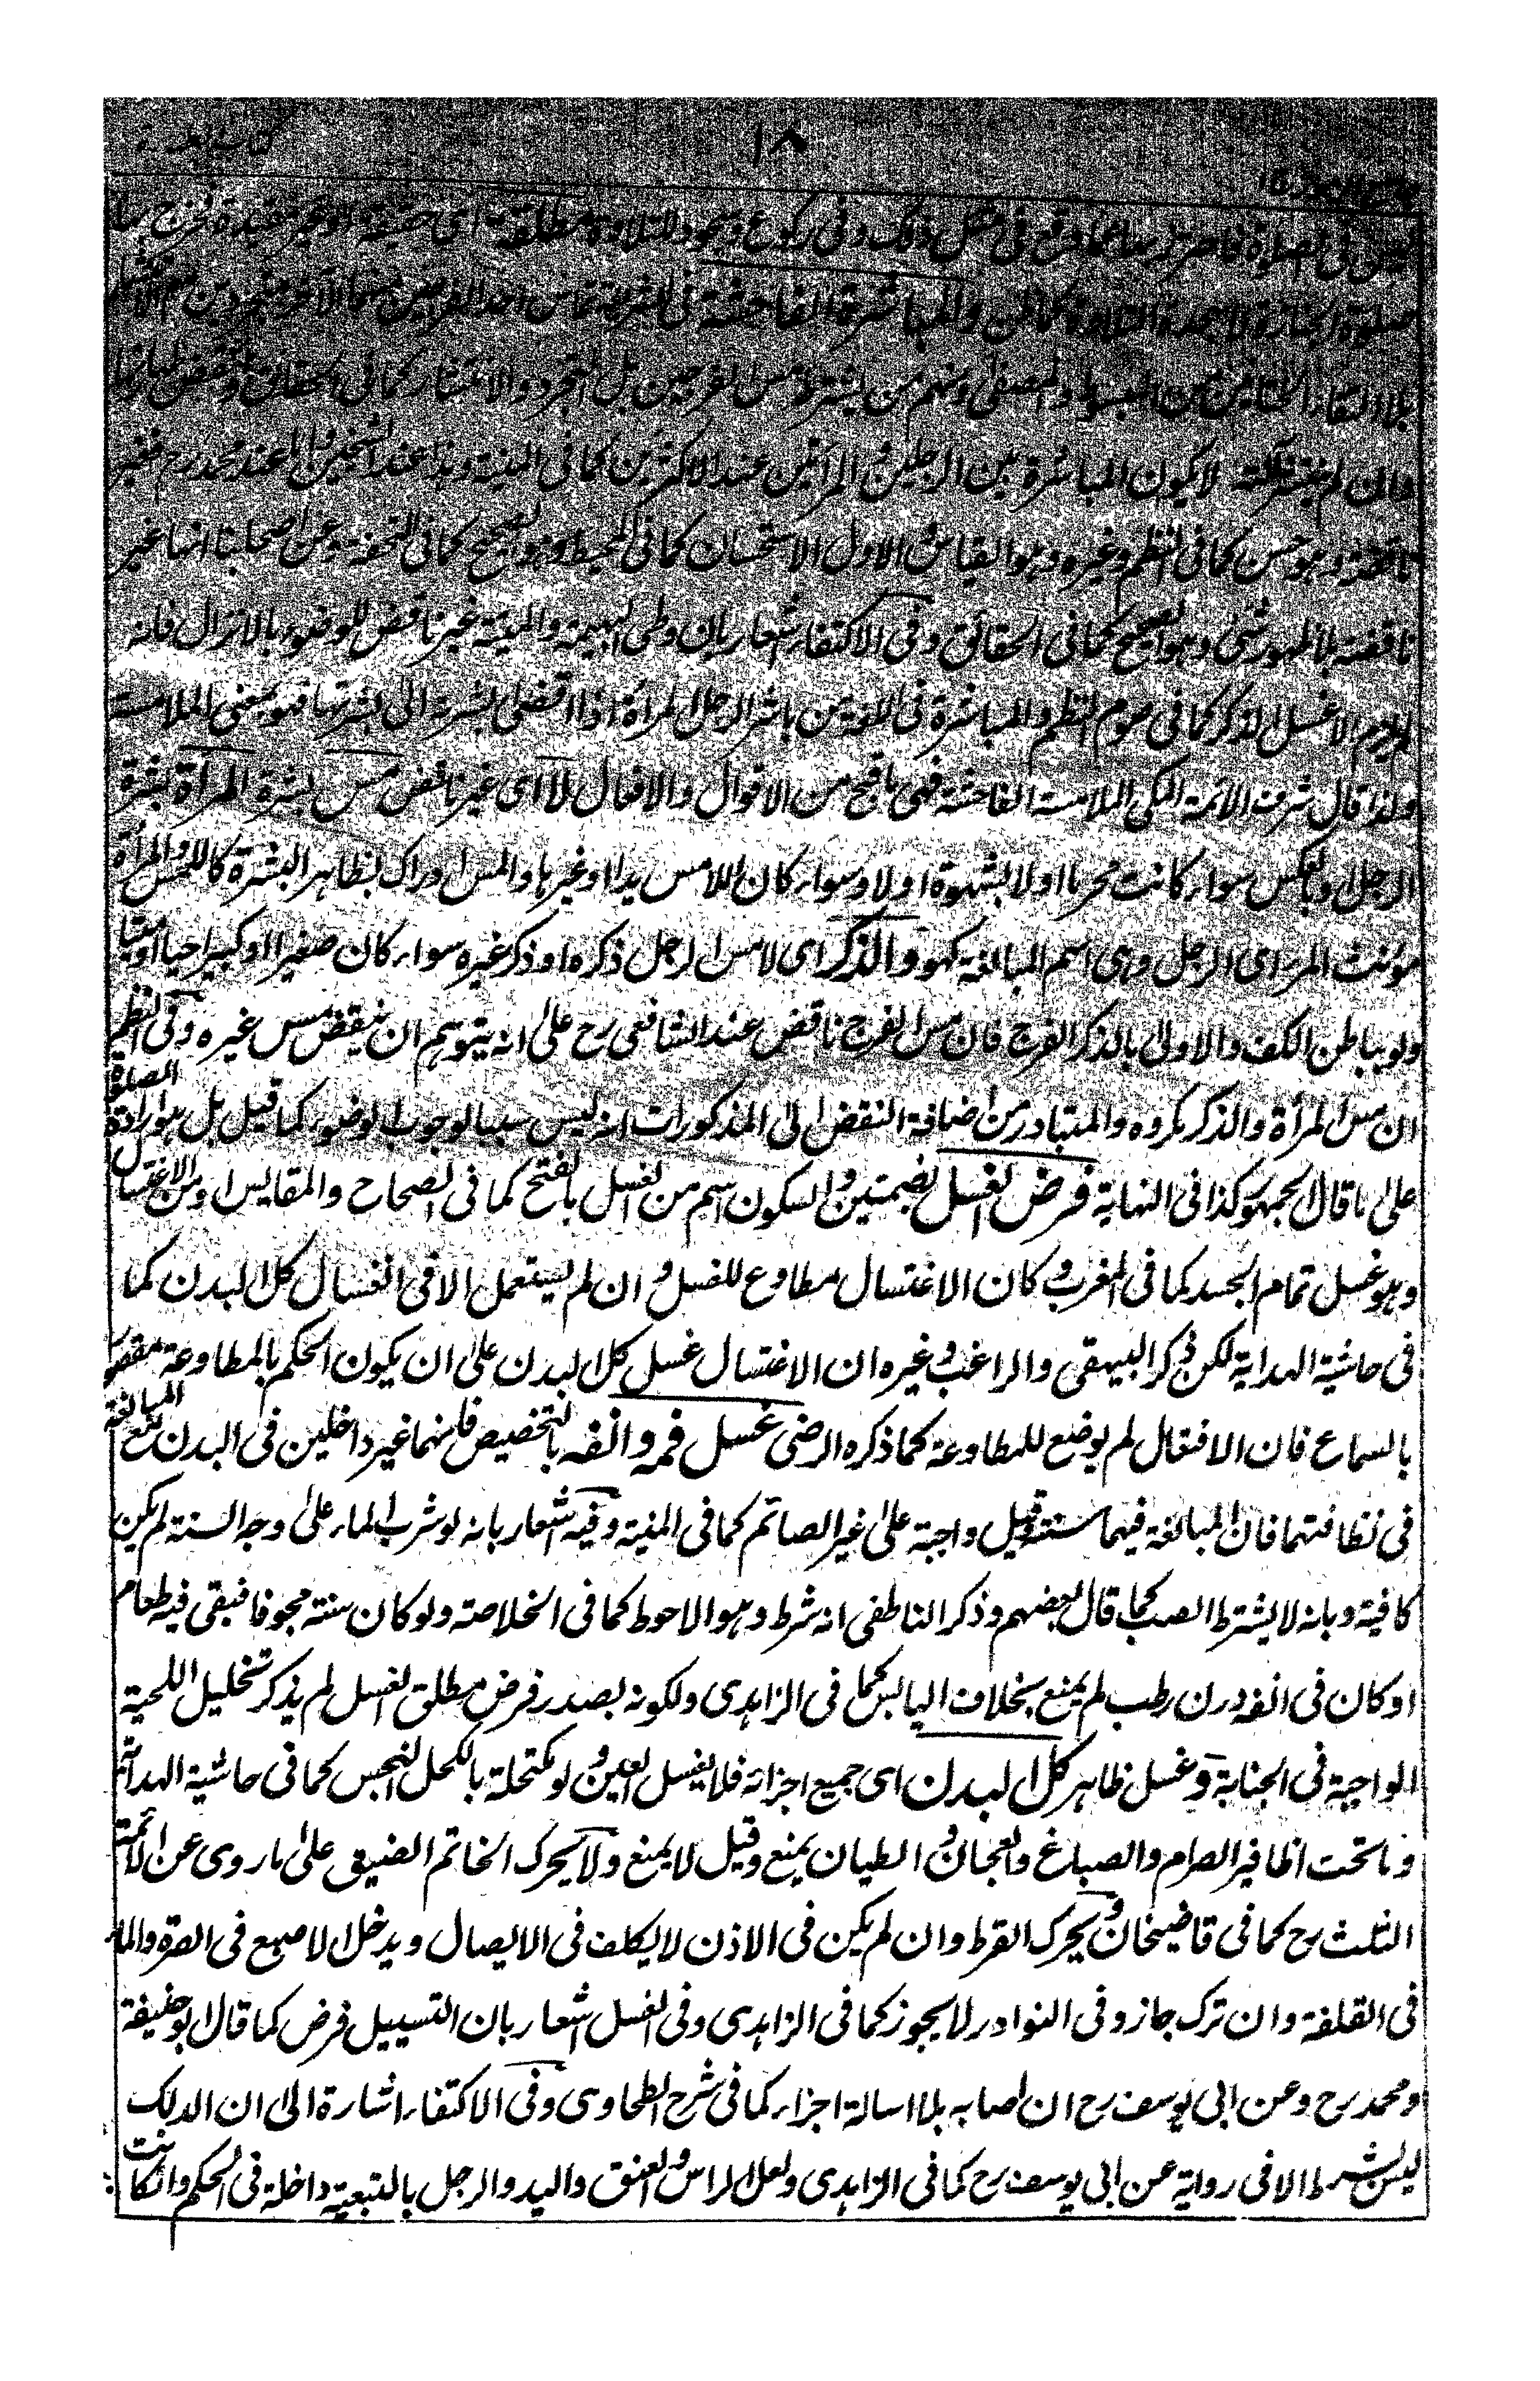 ١٨
وفى ركوع وسجود للتلاوة مطلقة اى حقيقة او غير مقيدة
صلوة الجنازة لا سجدة التلاوة كما ظن والمباشرة الفاحشة فى الشريعة تماس احد الفرجين
بلا التقاء الختانين من الفرجين بل التجرد والانتشار كما فى الحقائق
لا يكون المباشرة بين الرجلين والمرأتين عند الاكثرين كما فى المنية وهذا عند الشيخين واما عند محمد رح فغير
ناقضة وهو حسن كما فى النظم وغيره وهو القياس والاول الاستحسان كما فى المحيط وهو الصحيح كما فى التحفة وعن اصحابنا انها غير
ناقضة بلا ظهور شئ وهو الصحيح كما فى الحقائق وفى الاكتفاء اشعار بان وطى البهيمة والميتة غير ناقض للوضوء بلا انزال فانه
لم يلزم الا غسل الذكر كما فى صوم النظم والمباشرة فى اللغة من باشر الرجل المرأة اذا افضى بشرته الى بشرتها فهو بمعنى الملامسة
ولذا قال شرف الائمة المكى الملامسة الفاحشة فهى ما قبح من الاقوال والافعال لا اى غير ناقض مس بشرة المرأة بشرة
الرجل وبالعكس سواء كانت محرما او لا بشهوة او لا وسواء كان اللامس يدا او غيرها والمس ادراك بظاهر البشرة كاللمس والمرأة
مؤنث المرء اى الرجل وهى اسم للبالغة كهو والذكر اى لا مس الرجل ذكره او ذكر غيره سواء كان صغيرا او كبيرا حيا او ميتا
ولو بباطن الكف والاولى بالذكر الفرج فان مس الفرج ناقض عند الشافعى رح على انه يتوهم ان ينقض مس غيره وفى النظم
ان مس المرأة والذكر مكروه والمتبادر من اضافة النقض الى المذكورات انه ليس سببا لوجوب الوضوء كما قيل بل هو ارادة الصلوة
على ما قال الجمهور كذا فى النهاية فرض الغسل بضمتين والسكون اسم من الغسل بالفتح كما فى الصحاح والمقاييس او من الاغتسال
وهو غسل تمام الجسد كما فى المغرب وكان الاغتسال مطاوع للغسل وان لم يستعمل الا فى انغسال كل البدن كما
فى حاشية الهداية لكن ذكر البيهقى والراغب وغيره ان الاغتسال غسل كل البدن على ان يكون الحكم بالمطاوعة مقصور
بالسماع فان الافتعال لم يوضع للمطاوعة كما ذكره الرضى غسل فمه وانفه بالتخصيص فانهما غير داخلين فى البدن مع المبالغة
فى نظافتهما فان المبالغة فيهما سنة وقيل واجبة على غير الصائم كما فى المنية وفيه اشعار بانه لو شرب الماء على وجه السنة لم يكن
كافية وبانه لا يشترط الصب كما قال بعضهم وذكر الناطفى انه شرط وهو الاحوط كما فى الخلاصة ولو كان سنه مجوفا فبقى فيه طعام
او كان فى انفه درن رطب لم يمنع بخلاف اليابس كما فى الزاهدى ولكونه بصدد فرض مطلق الغسل لم يذكر تخليل اللحية
الواجبة فى الجنابة وغسل ظاهر كل البدن اى جميع اجزائه فلا يغسل العين ولو مكتحلة بالكحل النجس كما فى حاشية الهداية
وما تحت اظافير الصرام والصباغ والعجان والطيان يمنع وقيل لا يمنع ولا يحرك الخاتم الضيق على ما روى عن الائمة
الثلث رح كما فى قاضيخان ويحرك القرط وان لم يكن فى الاذن لا يكلف فى الايصال ويدخل الاصبع فى السرة والماء
فى القلفة وان ترك جاز وفى النوادر لا يجوز كما فى الزاهدى وفى الغسل اشعار بان التسييل فرض كما قال ابو حنيفة
ومحمد رح وعن ابى يوسف رح ان اصابه بلا اسالة اجزاء كما فى شرح الطحاوى وفى الاكتفاء اشارة الى ان الدلك
ليس بشرط الا فى رواية عن ابى يوسف رح كما فى الزاهدى ولعل الراس والعنق واليد والرجل بالتبعية داخلة فى الحكم وانكانت